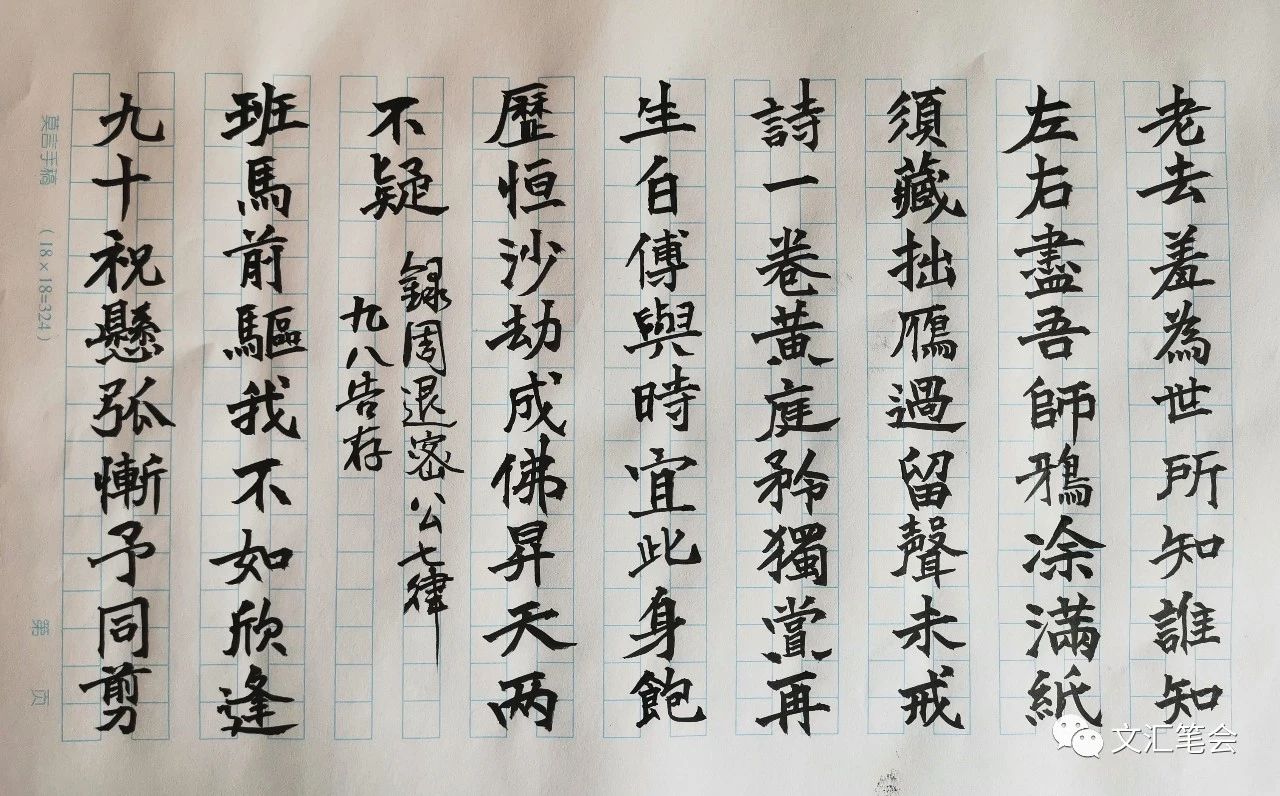 老去羞為世所知誰知
左右盡吾師鴉凃滿紙
須藏拙鴈過留聲未戒
詩一卷黃庭矜獨賞再
生白傅與時宜此身飽
歷恒沙劫成佛昇天两
不疑
錄周退密公七律
九八告存
班馬前驅我不如欣逢
九十祝懸弧慚予同剪
莫言手稿 (18×18=324)
第 页
文汇笔会